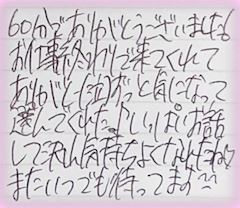 60分でありがとうございました!
お仕事終わりで来てくれて
ありがとー(泣)ずっと気になって
選んでくれた、うれしい。お話
して沢山気持ちよくなれたね♡
またいつでも待ってます^^